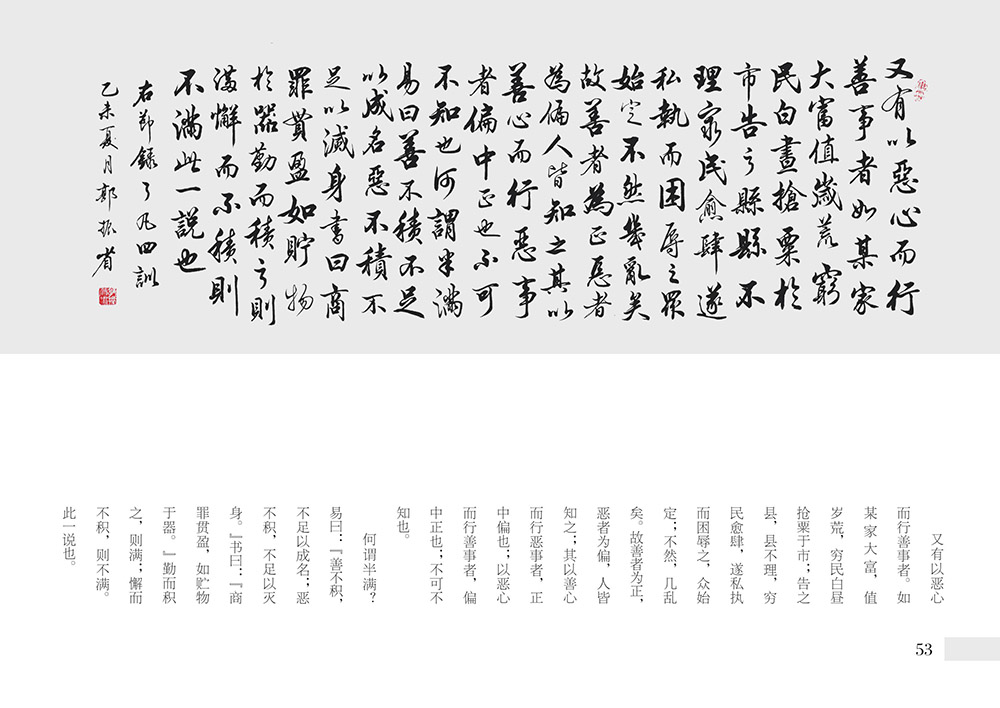 又有以惡心而行
善事者如某家
大富值歲荒窮
民白晝搶粟於
市告之縣縣不
理窮民愈肆遂
私執而困辱之眾
始定不然幾亂矣
故善者為正惡者
為偏人皆知之其以
善心而行惡事
者偏中正也不可
不知也何謂半滿
易曰善不積不足
以成名惡不積不
足以滅身書曰商
罪貫盈如貯物
於器勤而積之則
滿懈而不積則
不滿此一說也
右節錄了凡四訓
乙未夏月郭振省
又有以恶心
而行善事者。如
某家大富，值
岁荒，穷民白昼
抢粟于市；告之
县，县不理，穷
民愈肆，遂私执
而困辱之，众始
定；不然，几乱
矣。故善者为正，
恶者为偏，人皆
知之；其以善心
而行恶事者，正
中偏也；以恶心
而行善事者，偏
中正也；不可不
知也。
何谓半满？
易曰：『善不积，
不足以成名；恶
不积，不足以灭
身。』书曰：『商
罪贯盈，如贮物
于器。』勤而积
之，则满；懈而
不积，则不满。
此一说也。
53